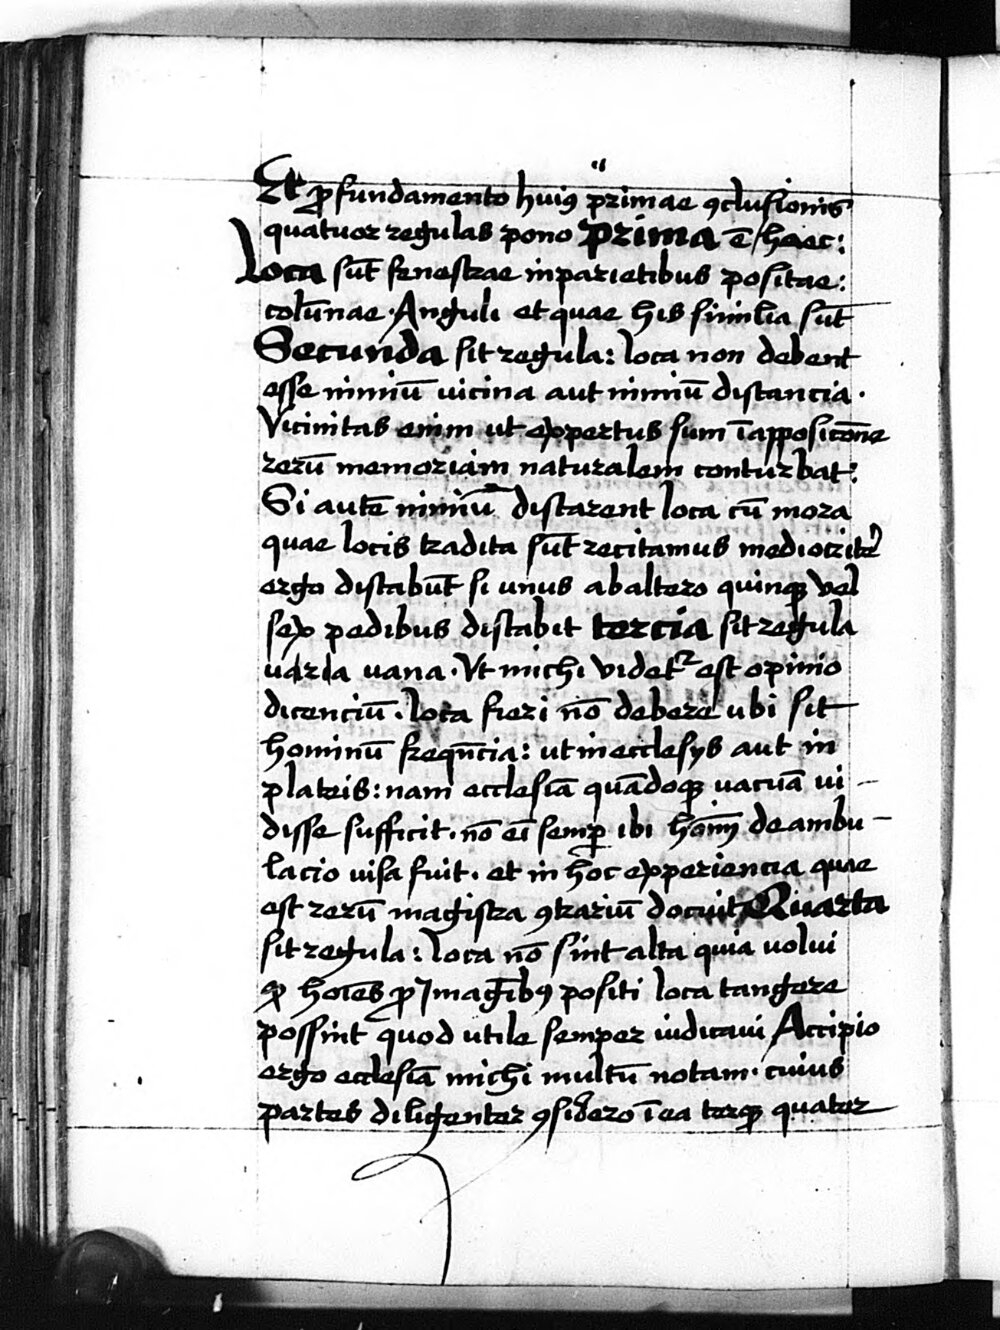 Et ꝓ fundamento huiꝯ primae ꝯclusionis
quatuor regulas pono Prima ē haec:
Loca sūt fenestrae in parietibus positae:
colūnae · Anguli et quae his similia sūt
Secunda sit regula: loca non debent
esse nimiū vicina aut nimiū distancia ·
Vicinitas enim ut expertus sum ī apposicōne
rerū memoriam naturalem conturbat:
Si autē nimiū distarent loca cū mora
quae locis tradita sūt recitamus mediocrit̉
ergo distabūt si unus ab altero quinqꝫ vel
sex pedibus distabit tercia sit regula
uana · Ut michi videtꝛ est opinio
dicenciū · loca fieri nō debere ubi sit
hominū freqn̄cia: ut in ecclesÿs aut in
plateis: nam ecclesiā quādoqꝫ vacuā vi-
disse sufficit · nō eī semꝑ ibi hoīm deambu-
lacio visa fuit · et in hoc experiencia quae
est rerū magistra ꝯtrariū docuit Quarta
sit regula: loca nō sint alta quia volui
ꝙ hoīes ꝓ Imagībꝯ positi loca tangere
possint quod utile semper iudicaui Accipio
ergo ecclesiā michi multū notam · cuius
partes diligenter ꝯsidero ī ea terqꝫ quater